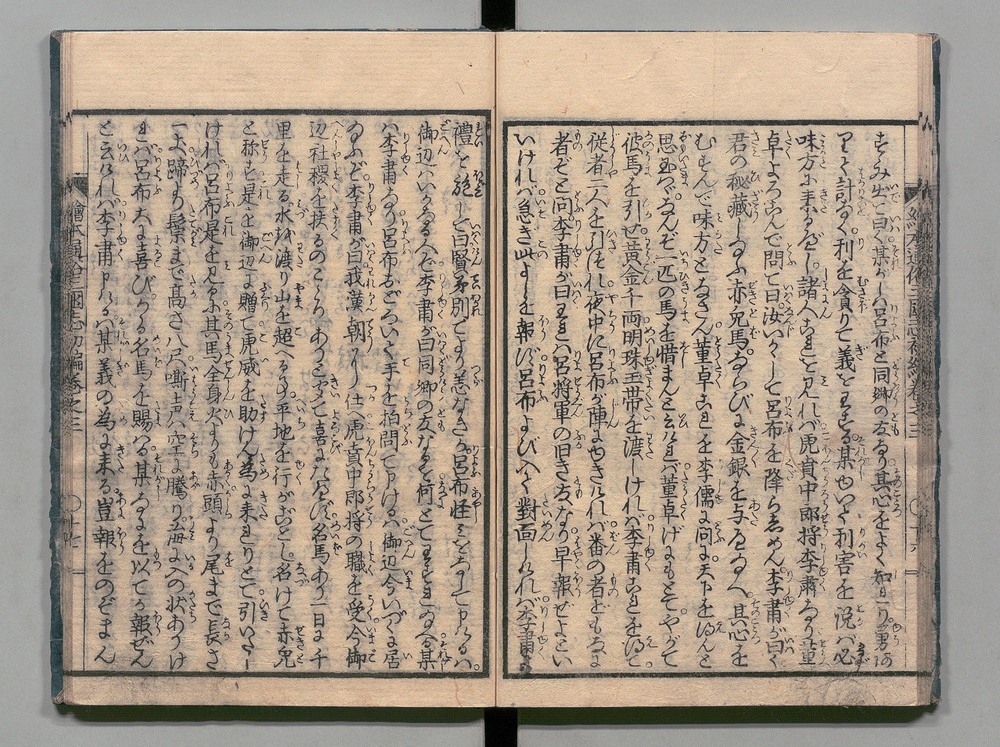 すゝみ出て曰く某かれ呂布と同郷の友なり其心をよく知れり勇有
りて計なく利を貪りて義をわする某ゆいて利害を説バ必
味方に来るべし諸人これを見れバ虎賁中郎将李粛なり董
卓よろこんで問て曰汝いかゞして呂布を降らしめん李粛が曰く
君の秘蔵し給ふ赤兎馬ならびに金銀を与へ給へ其心を
むすんで味方となさん董卓これを李儒に問ふ天下を得んと
思ひ玉ハゞなんぞ一匹の馬を惜まんと云けれバ董卓げにもとてやがて
彼馬を引せ黄金千両明珠玉帯を渡しけれバ李粛これを得て
従者二人を引つれ夜中に呂布が陣にゆきけれバ番の者どもなに
者ぞと問李粛が曰われハ呂将軍の旧き友なり早報ぜよとい
いけれバ急ぎ此よしを報ず呂布よび入て對面しけれバ李粛
禮を施して曰賢弟別てより恙なきか呂布怪みをなして申けるハ
御辺ハいかなる人ぞ李粛が曰同郷の友なるを何とてわすれ給へる某
ハ李粛なり呂布おどろいて手を拍問て申けるハ御辺今いづくに居
給ふぞ李粛が曰我漢朝に仕へ虎賁中郎将の職を受今御
辺社稷を扶るのこゝろありときゝて喜にたへず名馬あり一日に千
里を走る水を渡り山を超へる事平地を行がごとし名けて赤兎
と称す是を御辺に贈て虎威を助けん為に来れりとて引いだし
けれバ呂布是を見るに其馬全身火よりも赤頭より尾まで長さ
一丈蹄より鬃まで高さ八尺嘶声ハ空に騰り海に入の状ありけ
れバ呂布大に喜びかゝる名馬を賜ハる某なにを以てか報ぜん
と云けれバ李粛申けるハ某義の為に来る豈報をのぞまん
繪本通俗三國志初編巻之三
繪本通俗三國志初編巻之三